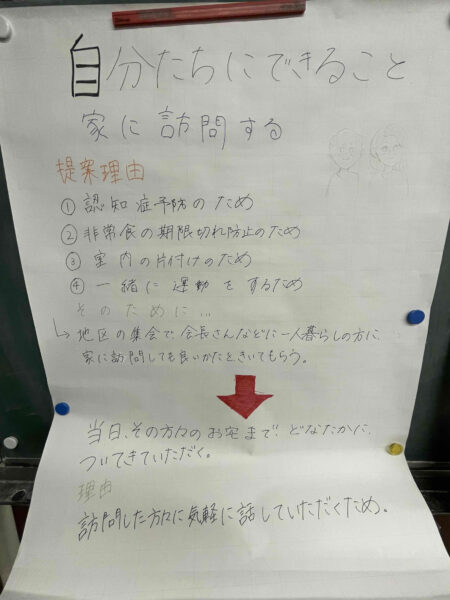 自分たちにできること
家に訪問する
提案理由
① 認知症予防のため
② 非常食の期限切れ防止のため
③ 室内の片付けのため
④ 一緒に運動をするため
そのために…
↳ 地区の集会で会長さんなどに一人暮らしの方に、
家に訪問しても良いかたときいてもらう。
当日、その方々のお宅まで、どなたかに、
ついてきていただく。
理由
訪問した方々に気軽に話していただくため。